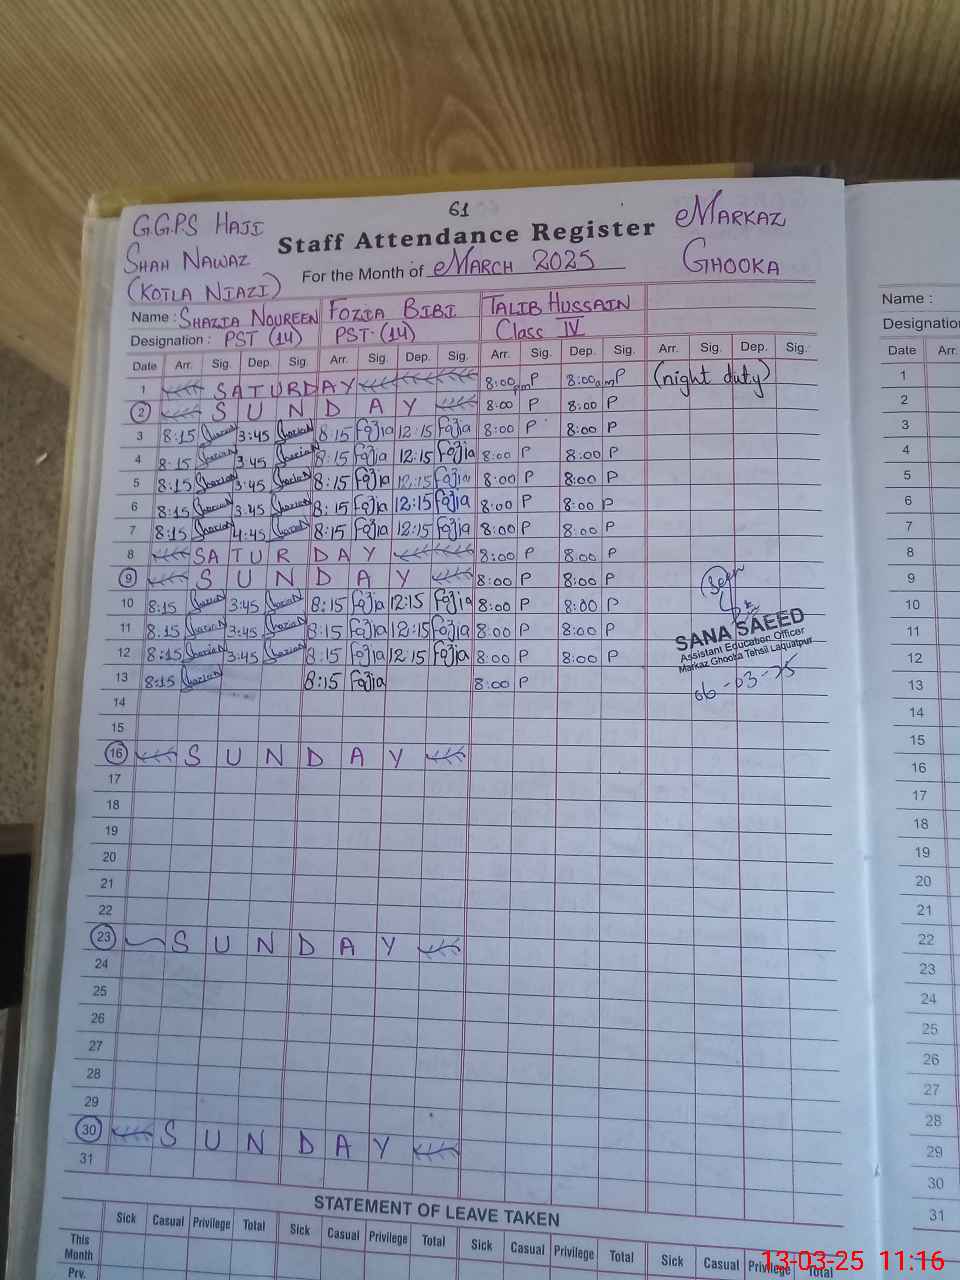 61
G.G.P.S HAJI
SHAH NAWAZ
(KOTLA NIAZI)
Staff Attendance Register
For the Month of MARCH 2025
MARKAZ
GHOOKA
Name : SHAZIA NOUREEN FOZIA BIBI TALIB HUSSAIN
Designation : PST (14) PST (14) Class IV
Date Arr. Sig. Dep. Sig. Arr. Sig. Dep. Sig. Arr. Sig. Dep. Sig. Arr. Sig. Dep. Sig.
1 SATURDAY 8:00pm P 8:00am P (night duty)
2 SUNDAY 8:00 P 8:00 P
3 8:15 3:45 8:15 Fozia 12:15 Fozia 8:00 P 8:00 P
4 8:15 3:45 8:15 Fozia 12:15 Fozia 8:00 P 8:00 P
5 8:15 3:45 8:15 Fozia 12:15 Fozia 8:00 P 8:00 P
6 8:15 3:45 8:15 Fozia 12:15 Fozia 8:00 P 8:00 P
7 8:15 4:45 8:15 Fozia 12:15 Fozia 8:00 P 8:00 P
8 SATURDAY 8:00 P 8:00 P
9 SUNDAY 8:00 P 8:00 P
10 8:15 3:45 8:15 Fozia 12:15 Fozia 8:00 P 8:00 P
11 8:15 3:45 8:15 Fozia 12:15 Fozia 8:00 P 8:00 P
12 8:15 3:45 8:15 Fozia 12:15 Fozia 8:00 P 8:00 P
13 8:15 8:15 Fozia 8:00 P
Seen
SANA SAEED
Assistant Education Officer
Markaz Ghooka Tehsil Liaquatpur
06-03-25
14
15
16 SUNDAY
17
18
19
20
21
22
23 SUNDAY
24
25
26
27
28
29
30 SUNDAY
31
STATEMENT OF LEAVE TAKEN
Sick Casual Privilege Total Sick Casual Privilege Total Sick Casual Privilege Total Sick Casual Privilege Total
This
Month
Prv.
Name :
Designation
Date Arr.
1
2
3
4
5
6
7
8
9
10
11
12
13
14
15
16
17
18
19
20
21
22
23
24
25
26
27
28
29
30
31
13-03-25 11:16